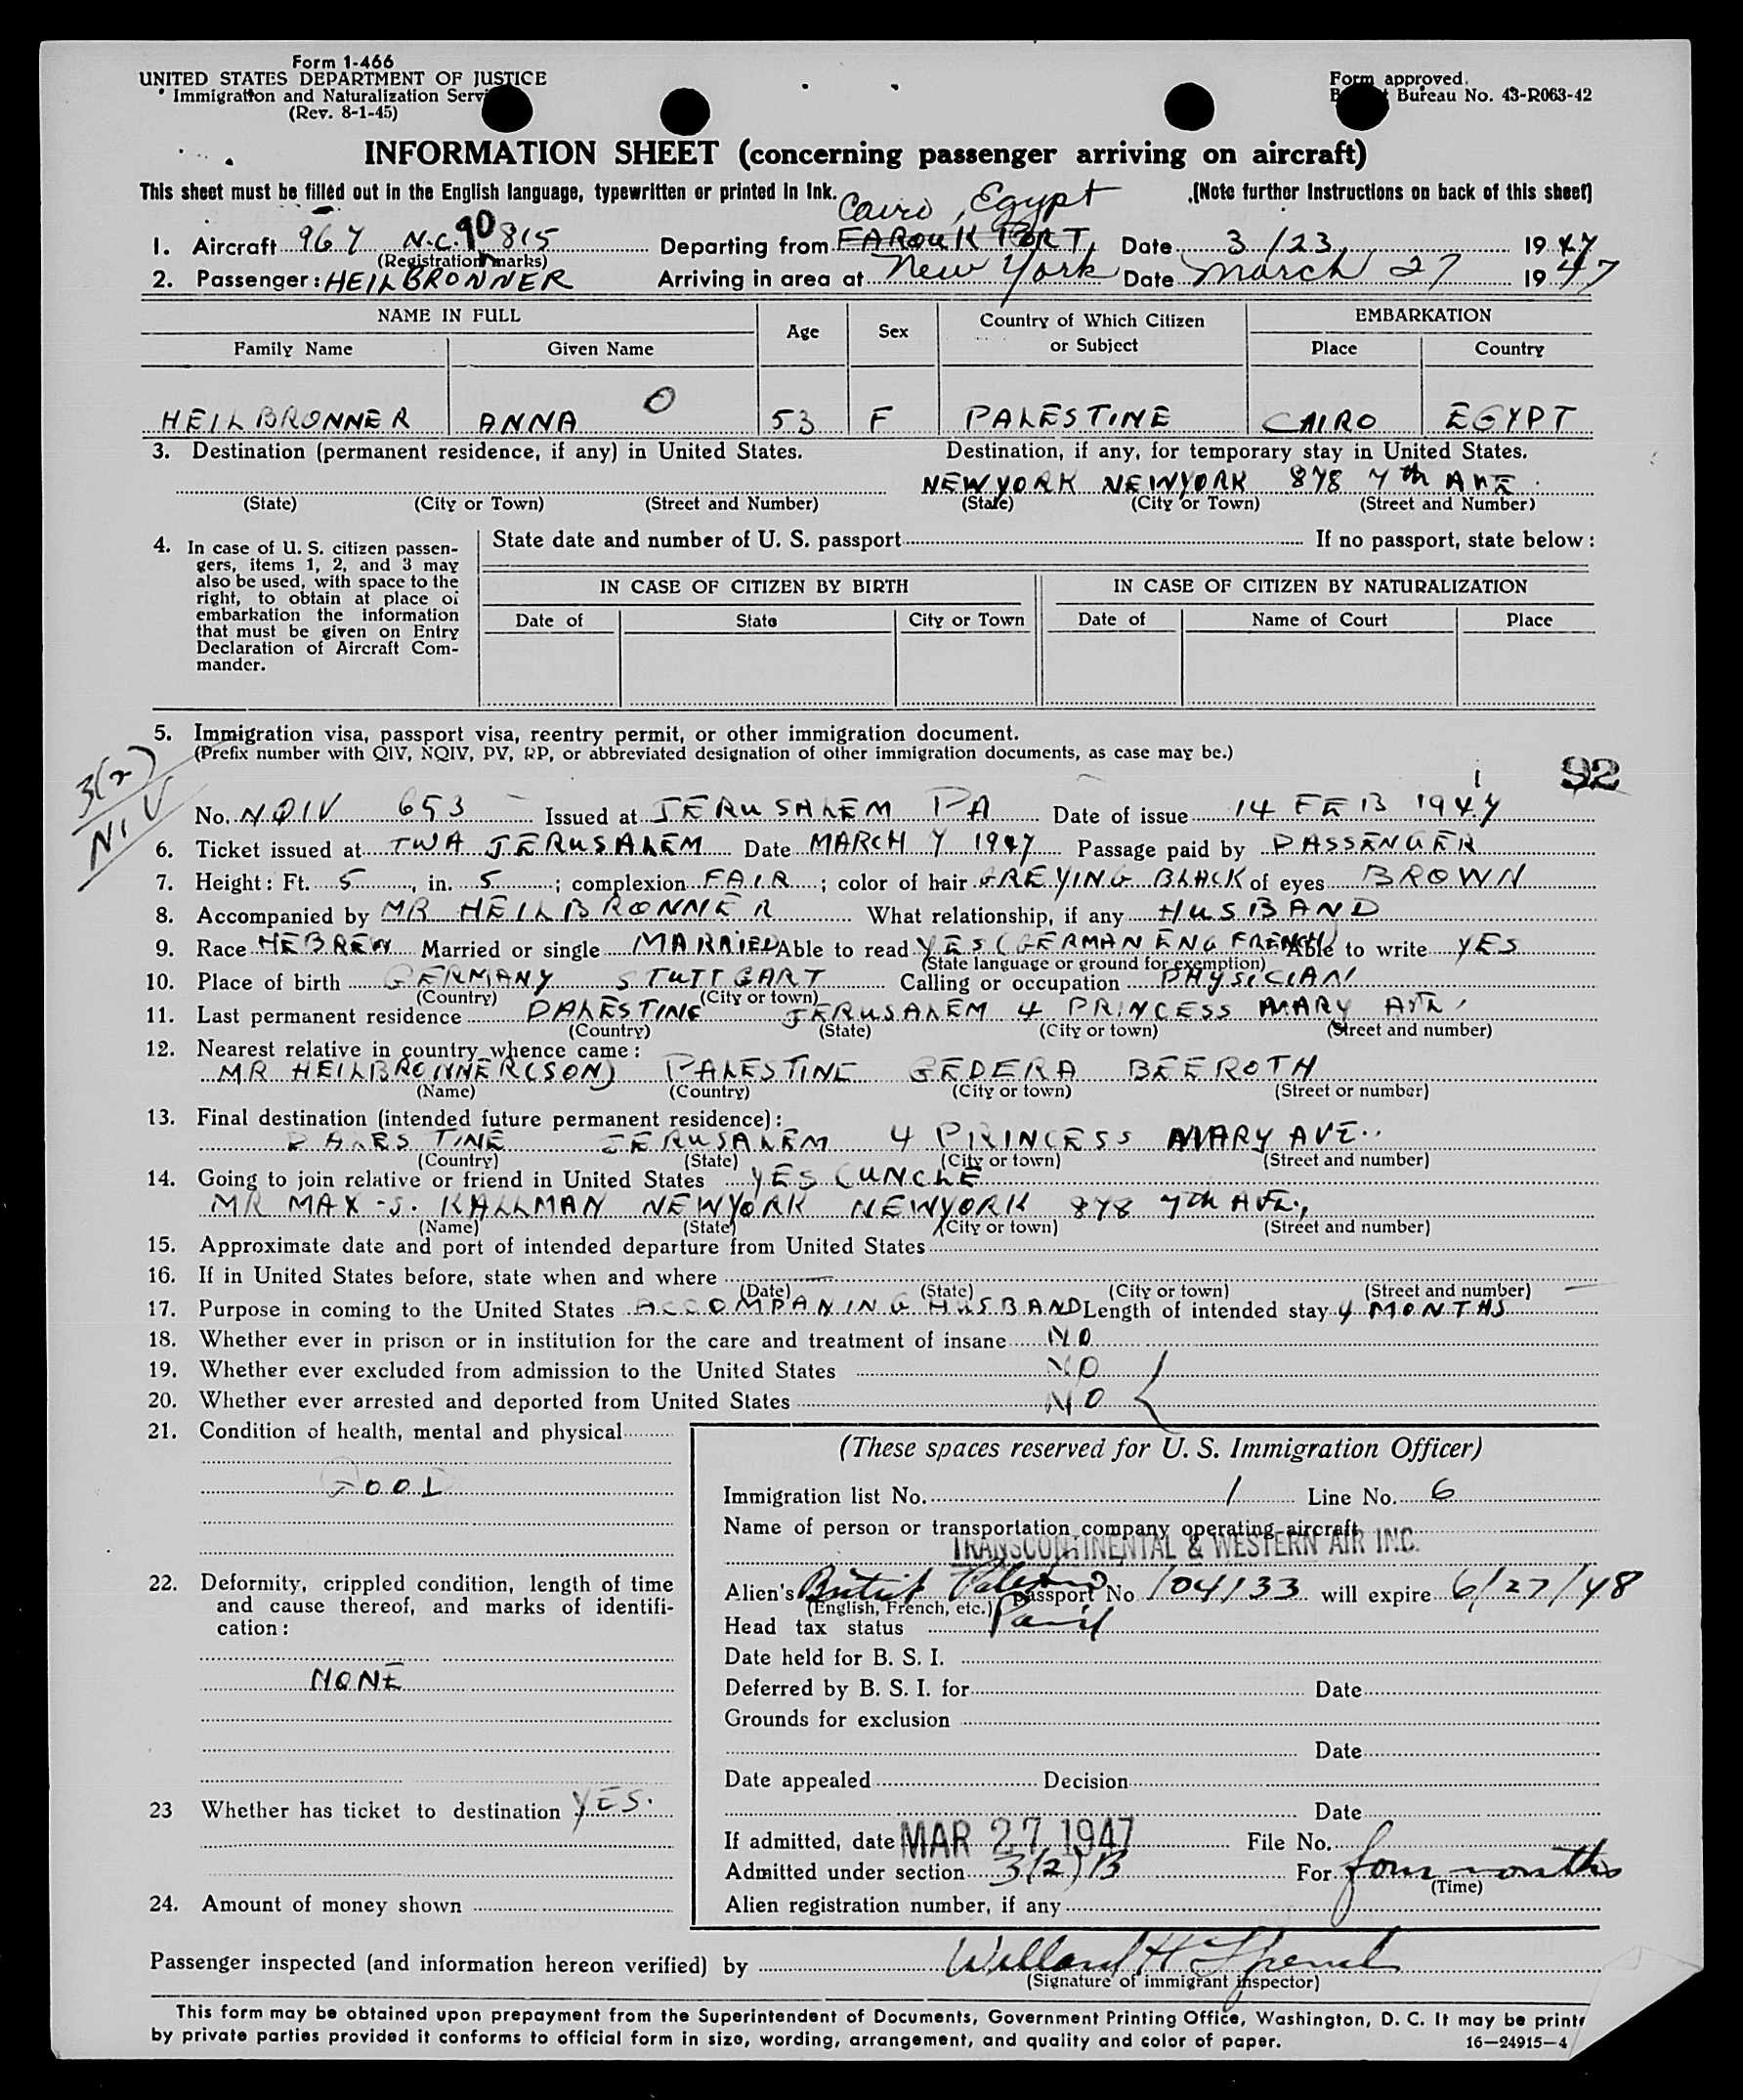 Form 1-466
UNITED STATES DEPARTMENT OF JUSTICE
Immigration and Naturalization Serv
(Rev. 8-1-45)
Form approved.
Bureau No. 43-R063-42
INFORMATION SHEET (concerning passenger arriving on aircraft)
This sheet must be filled out in the English language, typewritten or printed in ink. (Note further instructions on back of this sheet)
Cairo, Egypt
1. Aircraft 967 N.C. 90815 Departing from FAROUK PORT, Date 3/23 1947
(Registration marks)
2. Passenger: HEILBRONNER Arriving in area at New York Date March 27 1947
NAME IN FULL Age Sex Country of Which Citizen or Subject EMBARKATION
Family Name Given Name Place Country
O
HEILBRONNER ANNA 53 F PALESTINE CAIRO EGYPT
3. Destination (permanent residence, if any) in United States. Destination, if any, for temporary stay in United States.
NEWYORK NEWYORK 878 7th AVE.
(State) (City or Town) (Street and Number) (State) (City or Town) (Street and Number)
4. In case of U. S. citizen passen-
gers, items 1, 2, and 3 may
also be used, with space to the
right, to obtain at place of
embarkation the information
that must be given on Entry
Declaration of Aircraft Com-
mander.
State date and number of U. S. passport If no passport, state below:
IN CASE OF CITIZEN BY BIRTH IN CASE OF CITIZEN BY NATURALIZATION
Date of State City or Town Date of Name of Court Place
5. Immigration visa, passport visa, reentry permit, or other immigration document.
(Prefix number with QIV, NQIV, PV, RP, or abbreviated designation of other immigration documents, as case may be.)
3(2)
NIV
92
No. NQIV 653 Issued at JERUSALEM PA Date of issue 14 FEB 1947
6. Ticket issued at TWA JERUSALEM Date MARCH 7 1947 Passage paid by PASSENGER
7. Height: Ft. 5, in. 5; complexion FAIR; color of hair GREYING BLACK of eyes BROWN
8. Accompanied by MR HEILBRONNER What relationship, if any HUSBAND
9. Race HEBREW Married or single MARRIED Able to read YES (GERMAN ENG FRENCH) Able to write YES
(State language or ground for exemption)
10. Place of birth GERMANY STUTTGART Calling or occupation PHYSICIAN
(Country) (City or town)
11. Last permanent residence PALESTINE JERUSALEM 4 PRINCESS MARY AVE.
(Country) (State) (City or town) (Street and number)
12. Nearest relative in country whence came:
MR HEILBRONNER (SON) PALESTINE GEDERA BEEROTH
(Name) (Country) (City or town) (Street or number)
13. Final destination (intended future permanent residence):
PALESTINE JERUSALEM 4 PRINCESS MARY AVE..
(Country) (State) (City or town) (Street and number)
14. Going to join relative or friend in United States YES (UNCLE
MR MAX-J. KALLMAN NEWYORK NEWYORK 878 7th AVE.,
(Name) (State) (City or town) (Street and number)
15. Approximate date and port of intended departure from United States
16. If in United States before, state when and where
(Date) (State) (City or town) (Street and number)
17. Purpose in coming to the United States ACCOMPANING HUSBAND Length of intended stay 4 MONTHS
18. Whether ever in prison or in institution for the care and treatment of insane NO
19. Whether ever excluded from admission to the United States NO
20. Whether ever arrested and deported from United States NO
21. Condition of health, mental and physical
GOOD
22. Deformity, crippled condition, length of time
and cause thereof, and marks of identifi-
cation:
NONE
23 Whether has ticket to destination YES.
24. Amount of money shown
(These spaces reserved for U. S. Immigration Officer)
Immigration list No. 1 Line No. 6
Name of person or transportation company operating aircraft
TRANSCONTINENTAL & WESTERN AIR INC.
Alien's British passport No 104133 will expire 6/27/48
(English, French, etc.)
Head tax status Paid
Date held for B. S. I.
Deferred by B. S. I. for Date
Grounds for exclusion
Date
Date appealed Decision
Date
If admitted, date MAR 27 1947 File No.
Admitted under section 3(2)B For four months
(Time)
Alien registration number, if any
Passenger inspected (and information hereon verified) by Willard H
(Signature of immigrant inspector)
This form may be obtained upon prepayment from the Superintendent of Documents, Government Printing Office, Washington, D. C. It may be printe
by private parties provided it conforms to official form in size, wording, arrangement, and quality and color of paper. 16—24915-4